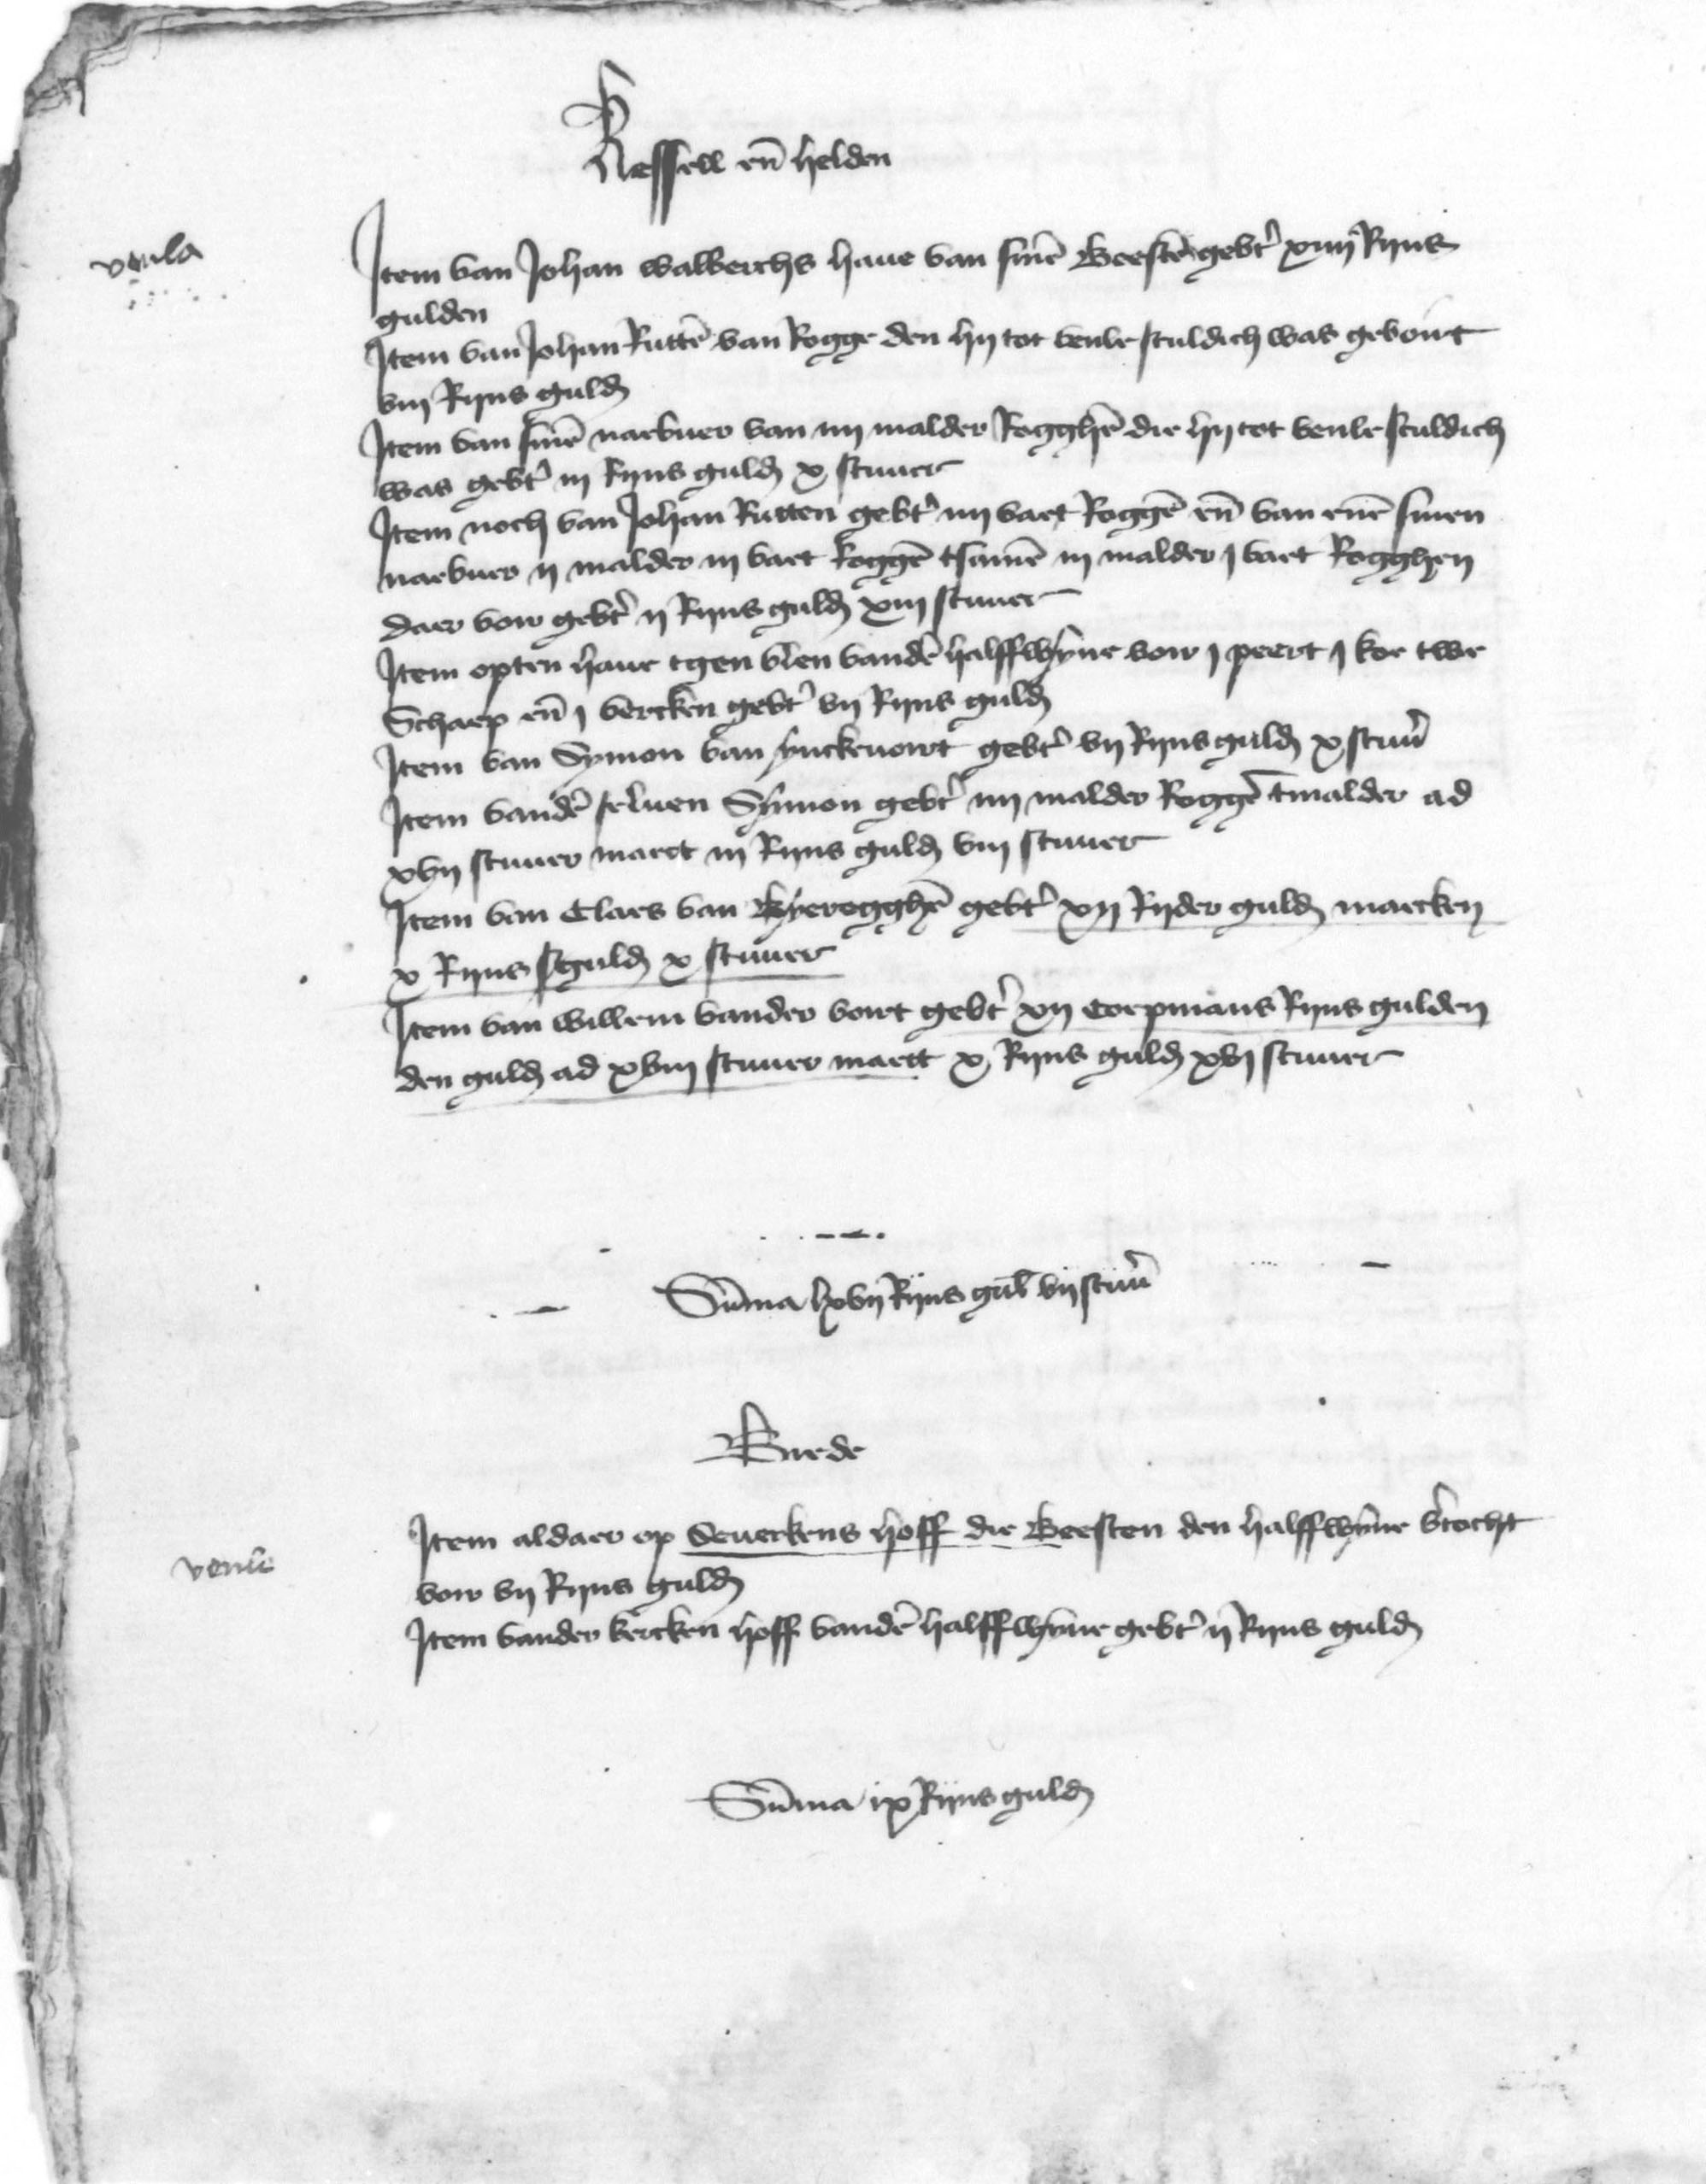 Kessell en̄ helden
venla
Item van Johan walberchs haue van sinē Beestē gebt' xiiij Rijns
gulden
Item van Johan Ruttē van Rogge den hij tot venle sculdich was geboirt
viij Rijns guld
Item van sinē naebuer van iiij malder Rogghē die hij tot venle sculdich
was gebt' iij Rijns guld x stuuer
Item noch van Johan Rutten gebt' iiij vaet Roggē en̄ van enē sinen
naebuer ij malder iij vaet Roggē tsamē iij malder j vaet Rogghen
daer voir gebt' ij Rijns guld xiij stuuer
Item opten haue tgen vlen vandē halffwyn̄e voir j peert j koe twe
Schaep en̄ j vercken gebt' vij Rijns guld
Item van Symon van hinckenoirt gebt' vij Rijns guld x stuu'
Item vandē seluen Symon gebt' iiij malder Roggē tmalder ad
xvij stuuer maect iij Rijns guld viij stuuer
Item van Claes van Byerogghē gebt' xij Rijder guld maecken
x Rijns guld x stuuer
Item van willem vander voirt gebt' xij Coepmans Rijns gulden
den guld ad xviij stuuer maect x Rijns guld xvj stuuer
Sūma lxvij Rijns gul vij stuu'
Brede
venle
Item aldaer op Seuerkens hoff die Beesten den halffwyn̄e v'cocht
voir vij Rijns guld
Item vander kercken hoff vandē halffwyn̄e gebt' ij Rijns guld
Sūma ix Rijns guld